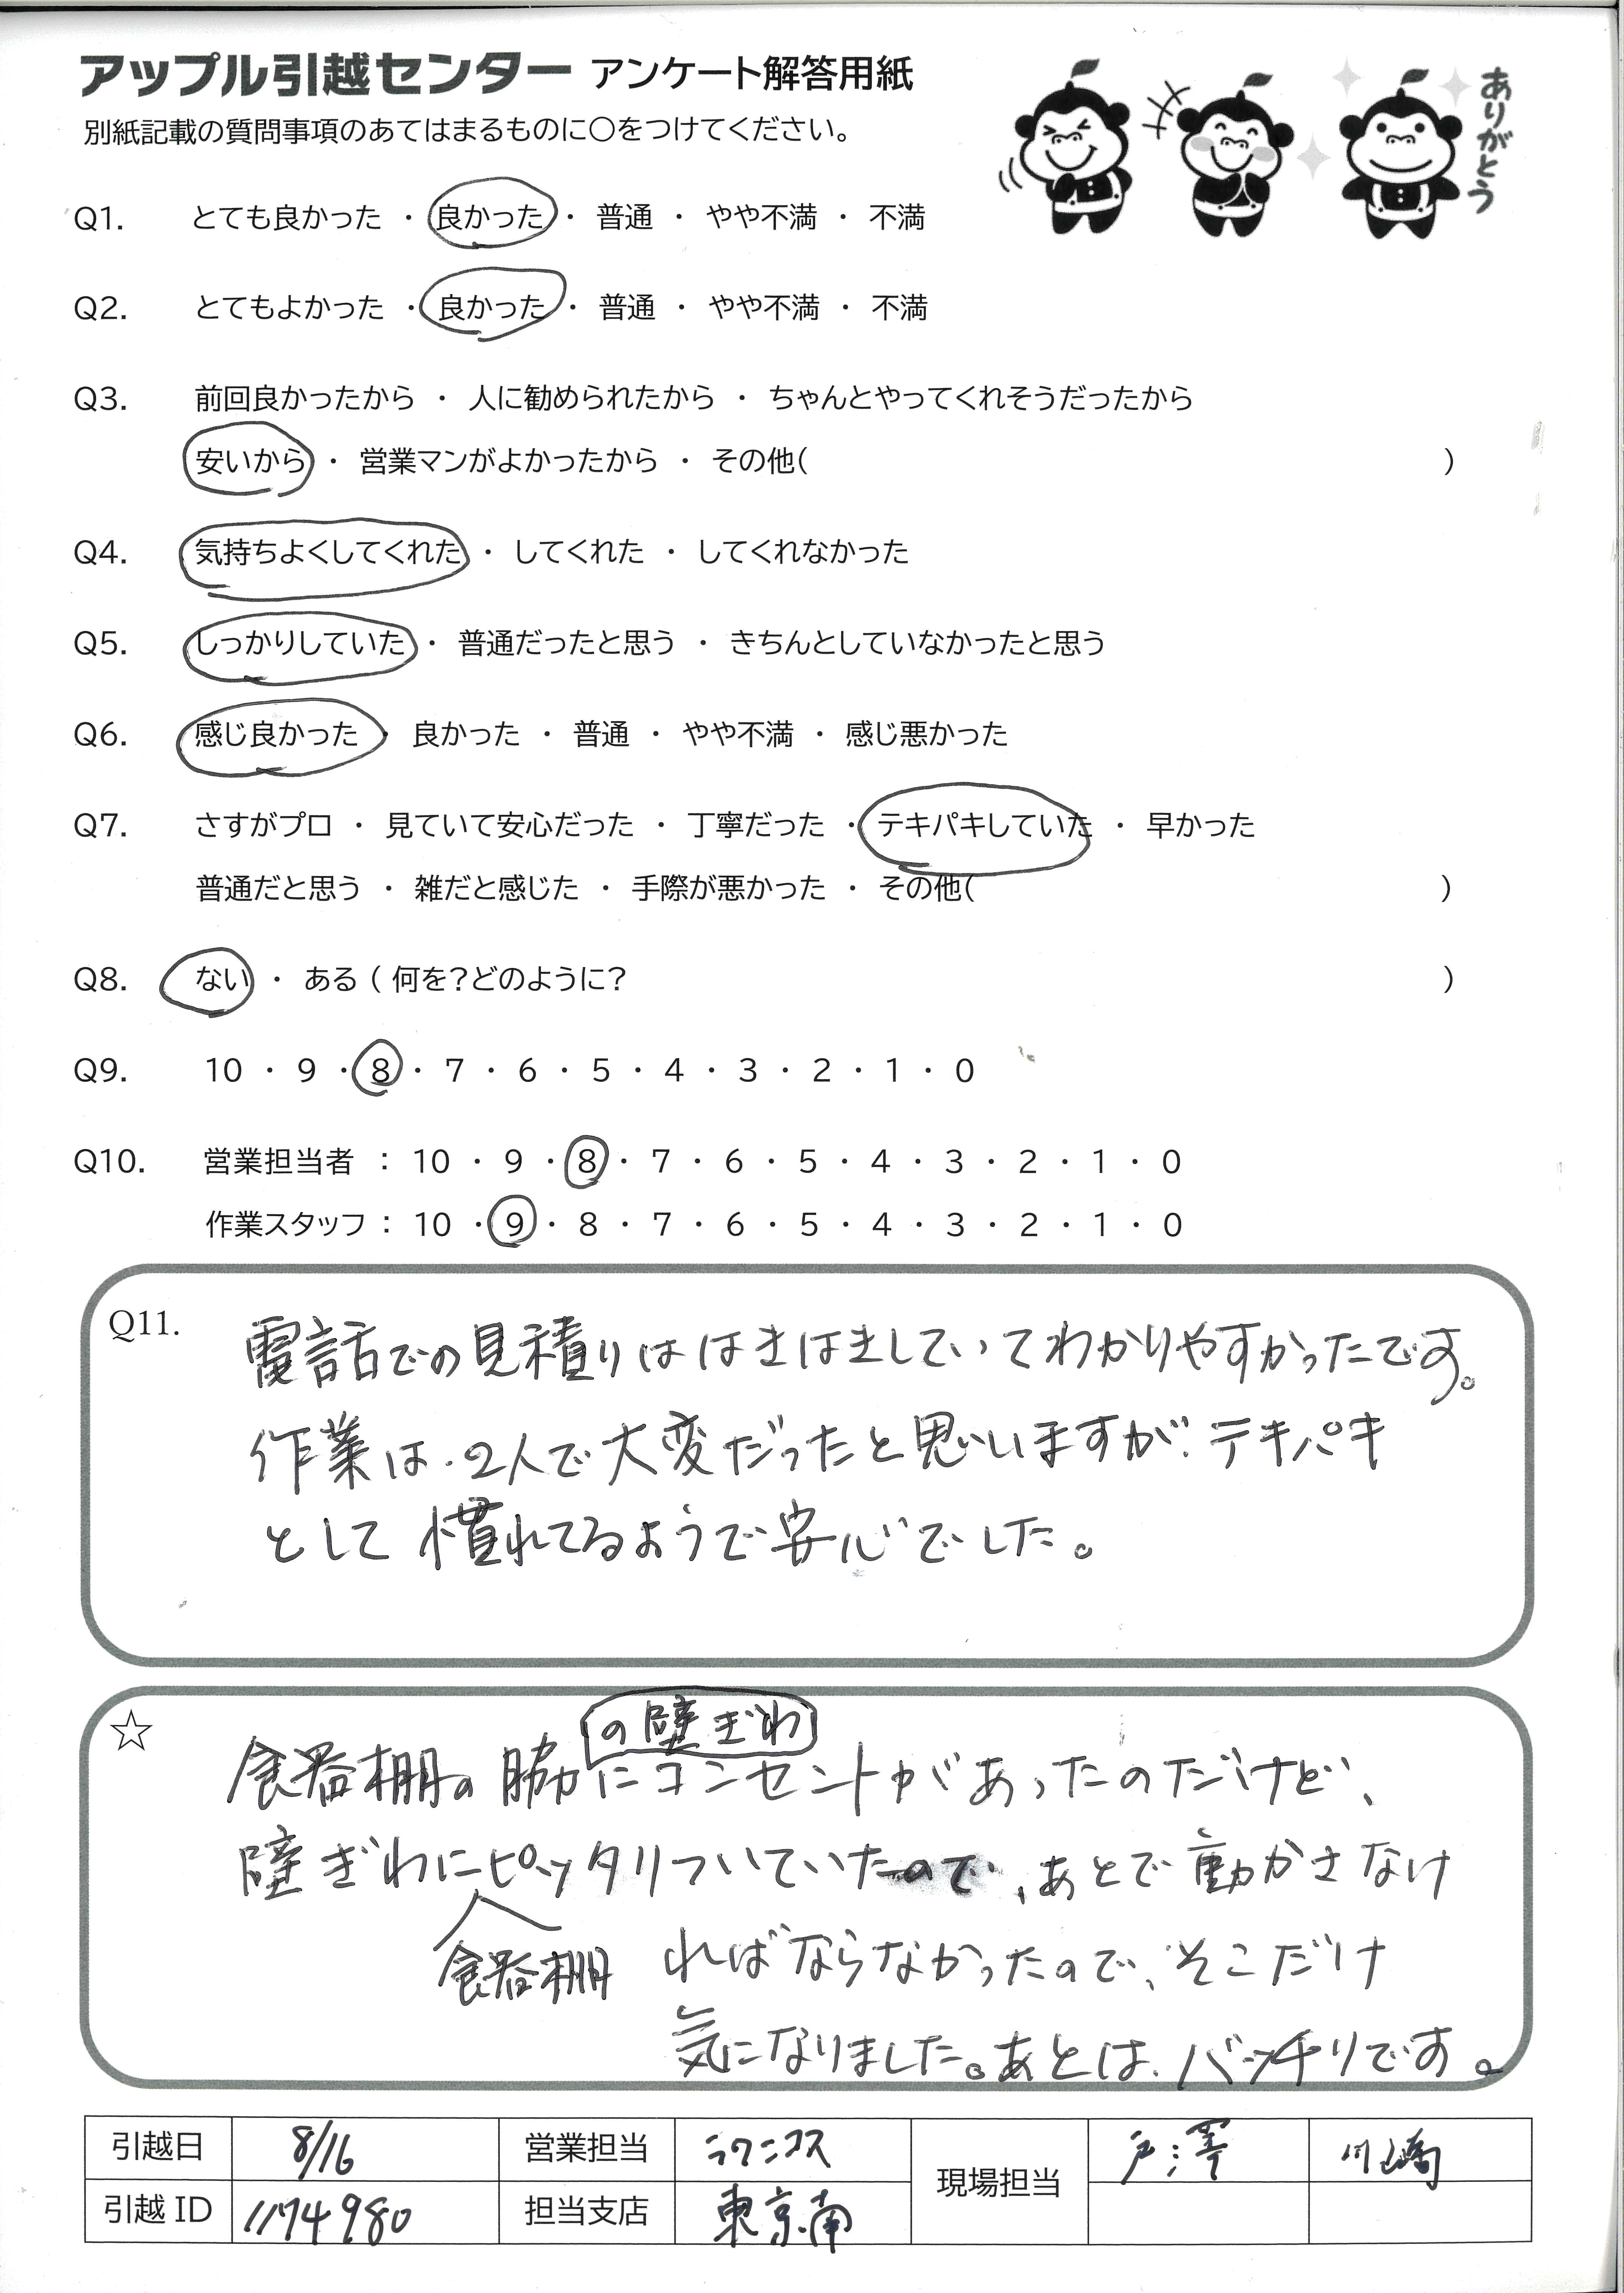 アップル引越センター アンケート解答用紙
ありがとう
別紙記載の質問事項のあてはまるものに〇をつけてください。
Q1. とても良かった ・ 良かった ・ 普通 ・ やや不満 ・ 不満
Q2. とてもよかった ・ 良かった ・ 普通 ・ やや不満 ・ 不満
Q3. 前回良かったから ・ 人に勧められたから ・ ちゃんとやってくれそうだったから
安いから ・ 営業マンがよかったから ・ その他( )
Q4. 気持ちよくしてくれた ・ してくれた ・ してくれなかった
Q5. しっかりしていた ・ 普通だったと思う ・ きちんとしていなかったと思う
Q6. 感じ良かった ・ 良かった ・ 普通 ・ やや不満 ・ 感じ悪かった
Q7. さすがプロ ・ 見ていて安心だった ・ 丁寧だった ・ テキパキしていた ・ 早かった
普通だと思う ・ 雑だと感じた ・ 手際が悪かった ・ その他( )
Q8. ない ・ ある ( 何を?どのように? )
Q9. 10 ・ 9 ・ 8 ・ 7 ・ 6 ・ 5 ・ 4 ・ 3 ・ 2 ・ 1 ・ 0
Q10. 営業担当者 : 10 ・ 9 ・ 8 ・ 7 ・ 6 ・ 5 ・ 4 ・ 3 ・ 2 ・ 1 ・ 0
作業スタッフ : 10 ・ 9 ・ 8 ・ 7 ・ 6 ・ 5 ・ 4 ・ 3 ・ 2 ・ 1 ・ 0
Q11. 電話での見積りははきはきしていてわかりやすかったです。
作業は、2人で大変だったと思いいますが、テキパキ
として慣れてるようで安心でした。
☆ の壁ぎわ
食器棚の脇にコンセントがあったのだけど、
壁ぎわにピッタリついていたので、あとで動かさなけ
食器棚 ればならなかったので、そこだけ
気になりました。あとは、バッチリです。
引越日 8/16 営業担当 ラワニコス 現場担当 戸澤 川崎
引越 ID 1174980 担当支店 東京南